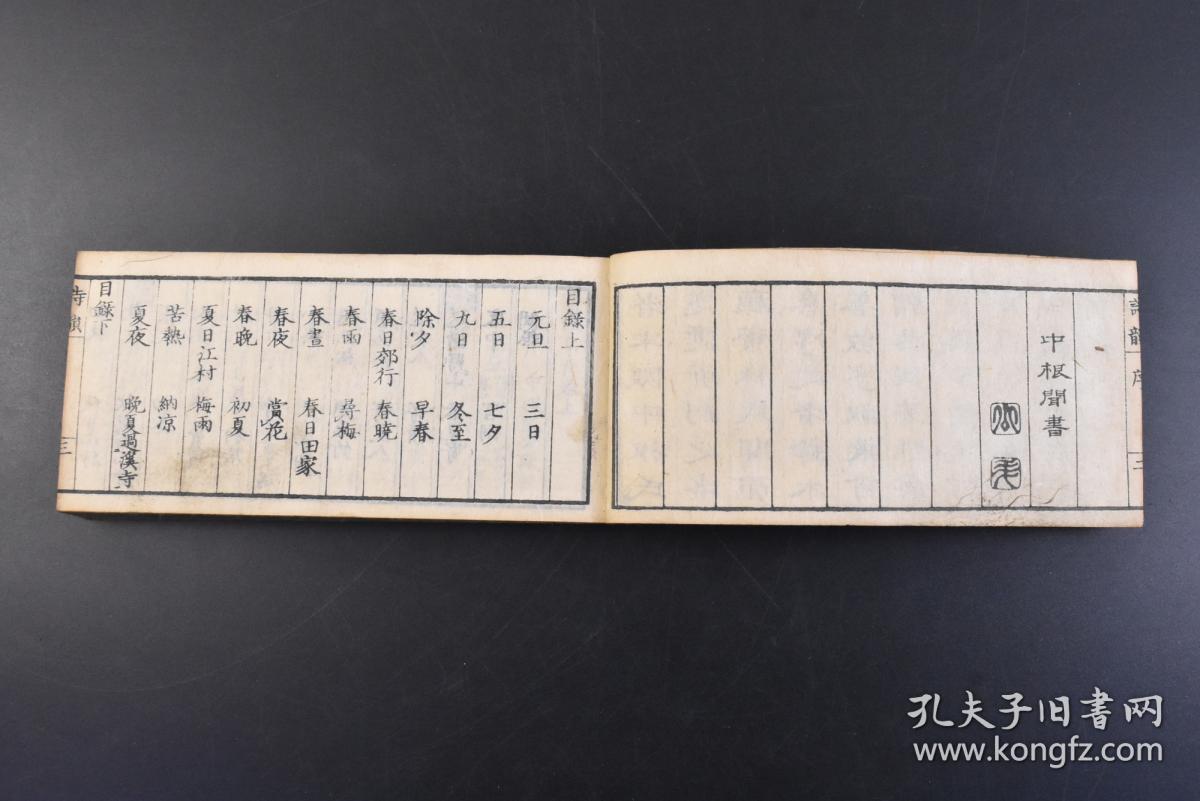 序
中根聞書
目錄上
元旦 三日
五日 七夕
九日 冬至
除夕 早春
春日郊行 春曉
春雨 尋梅
春晝 春日田家
春夜 賞花
春晩 初夏
夏日江村 梅雨
苦熱 納凉
夏夜 晩夏過溪寺
目錄下
三
孔夫子旧书网
www.kongfz.com